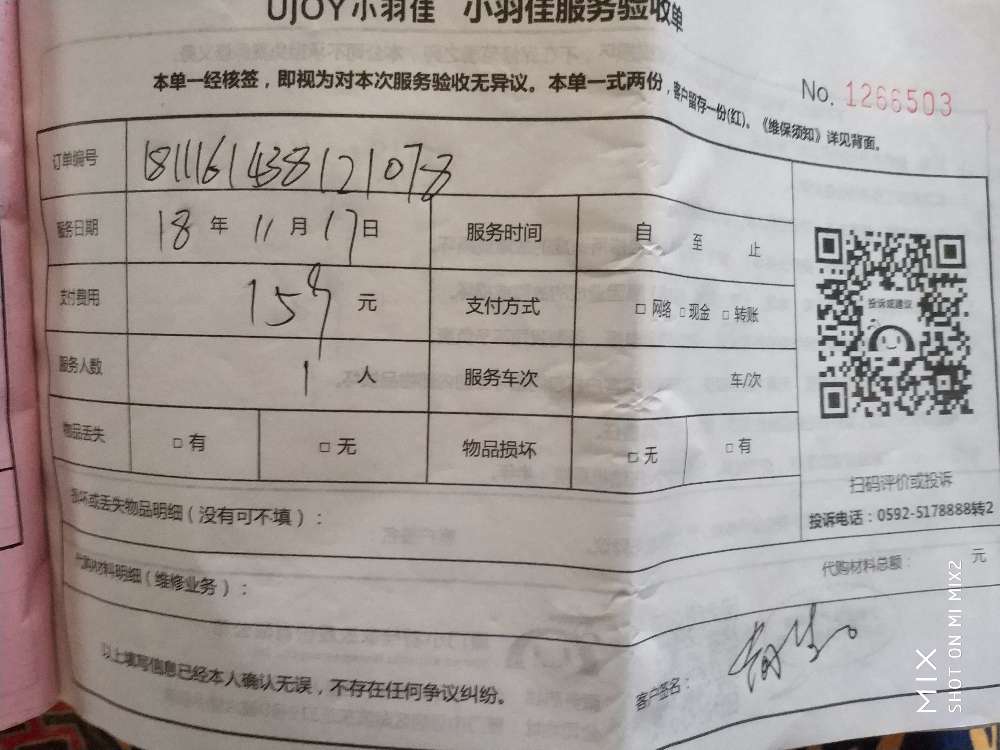 UJOY小羽佳 小羽佳服务验收单
本单一经核签，即视为对本次服务验收无异议。本单一式两份，客户留存一份(红)。《维保须知》详见背面。
No. 1266503
订单编号 1811161438121078
服务日期 18 年 11 月 17 日 服务时间 自 至 止
支付费用 159 元 支付方式 □ 网络 □ 现金 □ 转账
服务人数 1 人 服务车次 车/次
物品丢失 □ 有 □ 无 物品损坏 □ 无 □ 有
投诉或建议
扫码评价或投诉
投诉电话：0592-5178888转2
损坏或丢失物品明细（没有可不填）：
代购材料明细（维修业务）： 代购材料总额： 元
以上填写信息已经本人确认无误，不存在任何争议纠纷。 客户签名：
MIX
SHOT ON MI MIX2